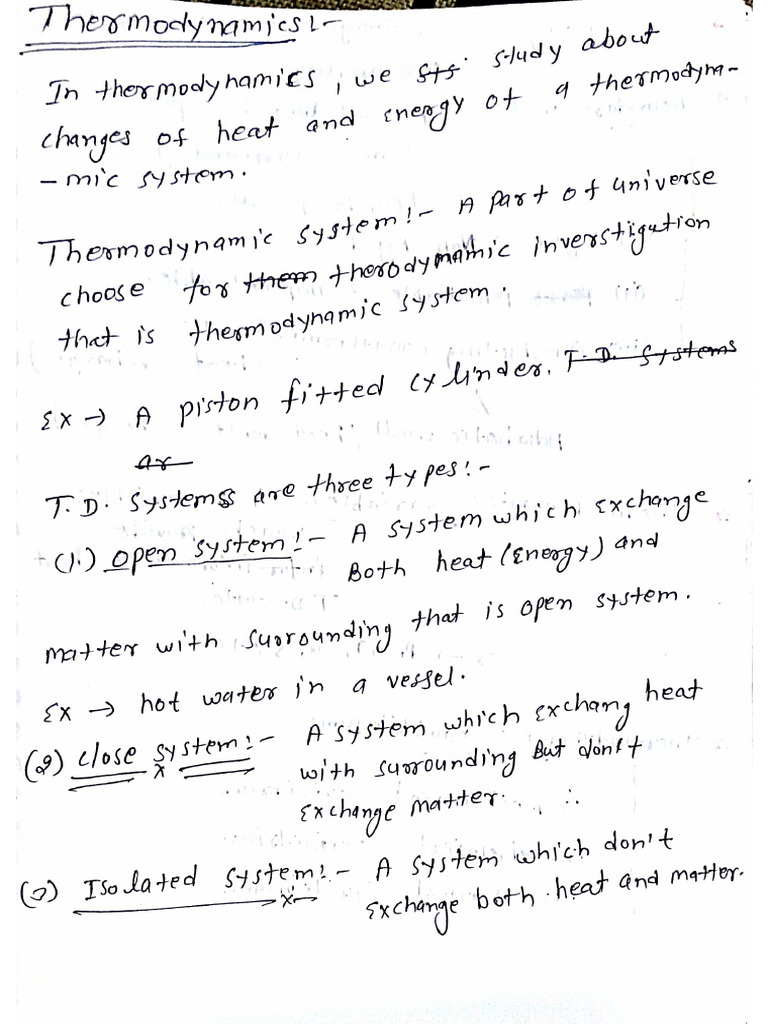 Thermodynamics:-
In thermodynamics, we sts study about
changes of heat and energy of a thermodyna-
-mic system.
Thermodynamic system:- A part of universe
choose for them therodymamic inverstigation
that is thermodynamic system.
Ex → A piston fitted cylinder. T.D. Systems
ar
T.D. Systems are three types:-
(1.) Open system:- A system which exchange
Both heat (Energy) and
matter with surrounding that is open system.
Ex → hot water in a vessel.
(2) close system:- A system which Exchang heat
with surrounding But don't
Exchange matter.
(3) Isolated system:- A system which don't
Exchange both heat and matter.